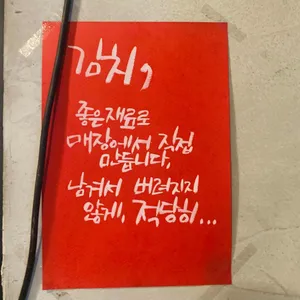 김치,
좋은재료로
매장에서 직접
만듭니다.
남겨서 버려지지
않게, 적당히...